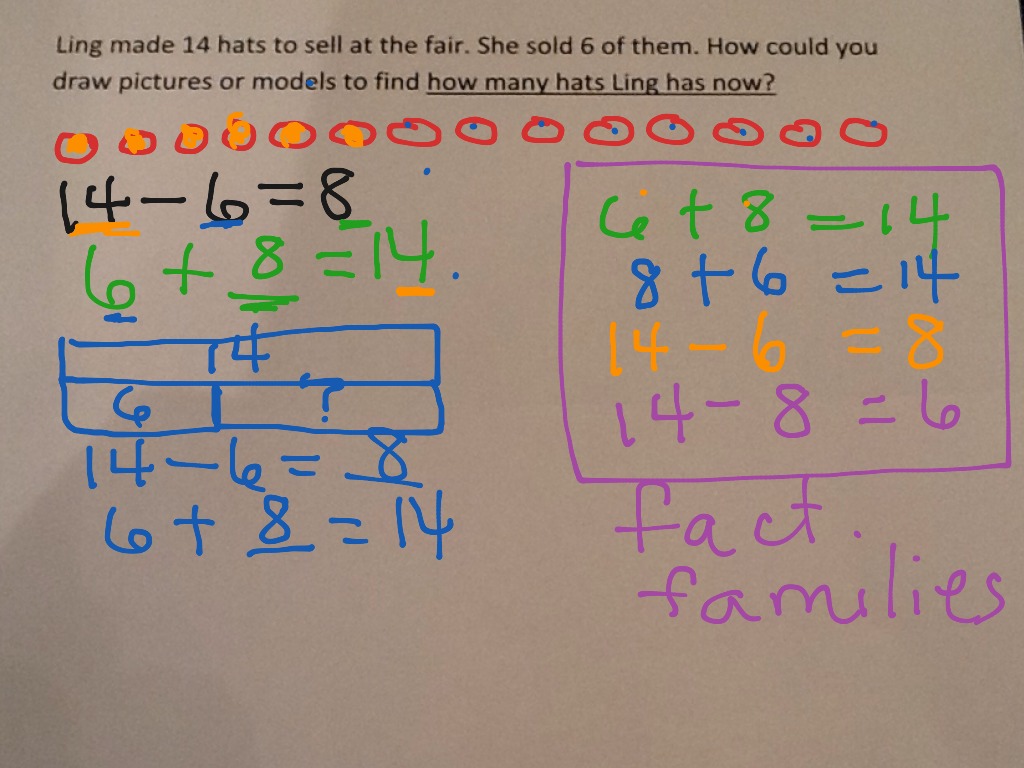 Ling made 14 hats to sell at the fair. She sold 6 of them. How could you
draw pictures or models to find how many hats Ling has now?
14 - 6 = 8
6 + 8 = 14
14
6 ?
14 - 6 = 8
6 + 8 = 14
6 + 8 = 14
8 + 6 = 14
14 - 6 = 8
14 - 8 = 6
fact
families